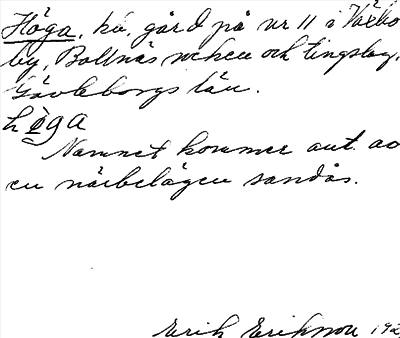 Höga, ho, gård på nr 11 i Växbo
by, Bollnäs socken och tingslag,
Gävleborgs län.
höga
Namnet kommer ant. av
en närbelägen sandås.
Erik Erikson 192